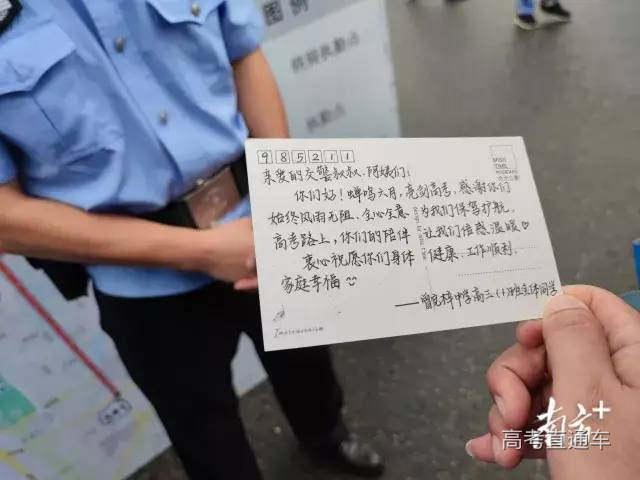 图例
铁骑执勤点
执勤点
985211
亲爱的交警叔叔、阿姨们:
你们好!蝉鸣六月,亮剑高考,感谢你们
始终风雨无阻、全心全意为我们保驾护航。
高考路上,你们的陪伴让我们倍感温暖♡
衷心祝愿你们身体健康、工作顺利、
家庭幸福
——曾宪梓中学高三(十)班全体同学
南方+
高考直通车